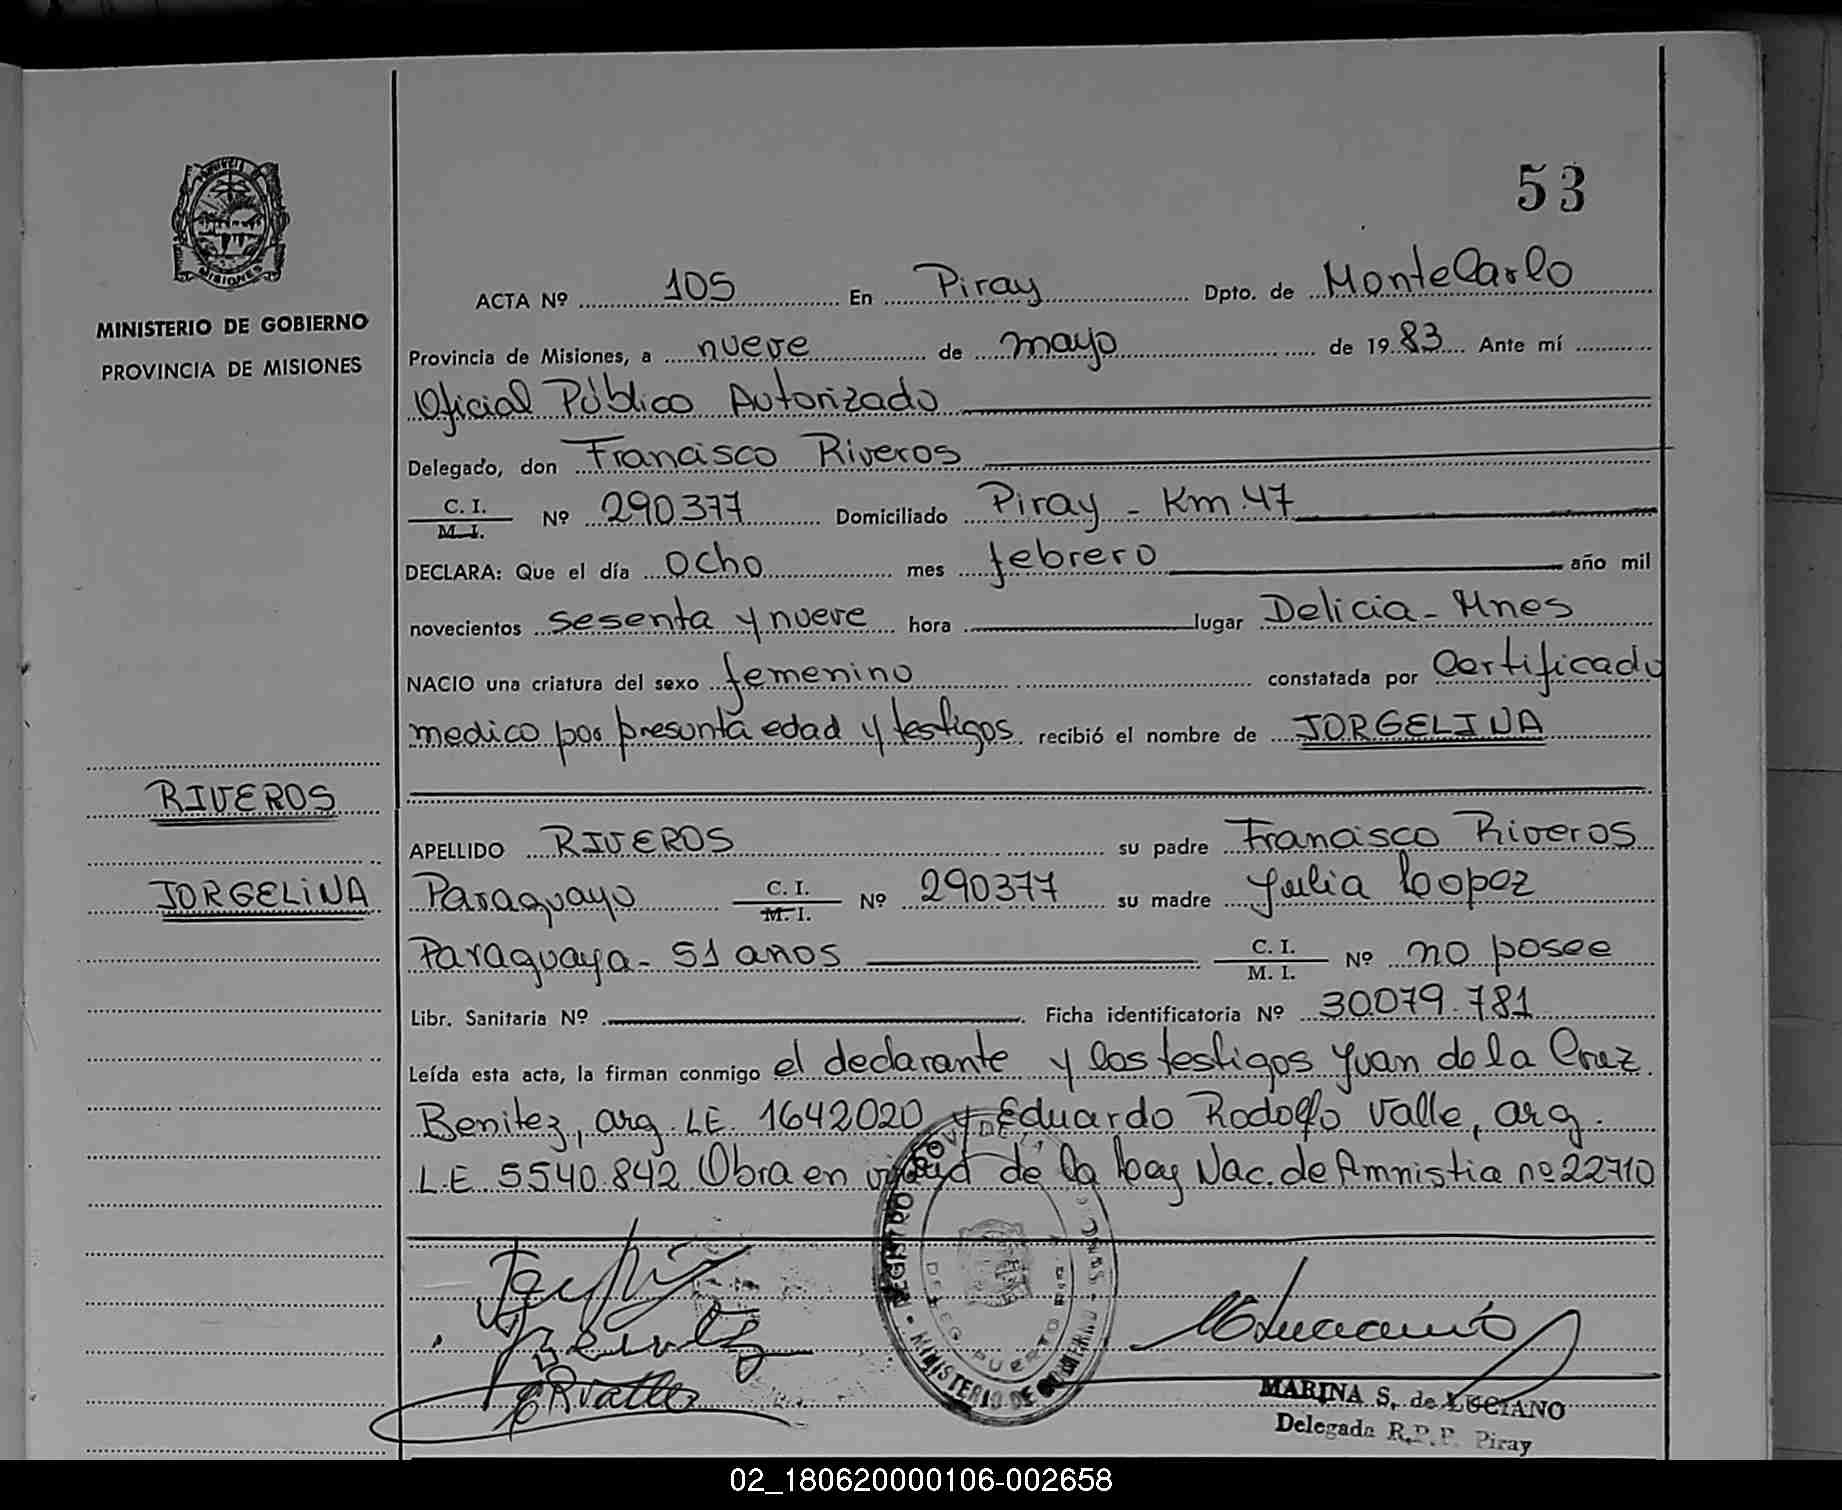 53
MISIONES
MINISTERIO DE GOBIERNO
PROVINCIA DE MISIONES
RIVEROS
JORGELINA
ACTA Nº 105 En Piray Dpto. de MonteCarlo
Provincia de Misiones, a nueve de mayo de 1983 Ante mí
Oficial Público Autorizado
Delegado, don Francisco Riveros
C. I. M. I. Nº 290377 Domiciliado Piray - Km. 47
DECLARA: Que el día ocho mes febrero año mil
novecientos sesenta y nueve hora lugar Delicia - Mnes
NACIO una criatura del sexo femenino constatada por Certificado
medico por presunta edad y testigos recibió el nombre de JORGELINA
APELLIDO RIVEROS su padre Francisco Riveros
Paraguayo C. I. M. I. Nº 290377 su madre Julia Lopez
Paraguaya - 51 años C. I. M. I. Nº no posee
Libr. Sanitaria Nº Ficha identificatoria Nº 30079.781
Leída esta acta, la firman conmigo el declarante y los testigos Juan de la Cruz
Benitez, arg. LE. 1642020 y Eduardo Rodolfo Valle, arg.
L.E 5540.842 Obra en virtud de la Ley Nac. de Amnistia nº 22710
REGISTRO PROV. DE LAS PERSONAS - MINISTERIO DE GOBIERNO
Benitez
ERValle
MARINA S. de LUCIANO
Delegada R.P.P. Piray
02_180620000106-002658